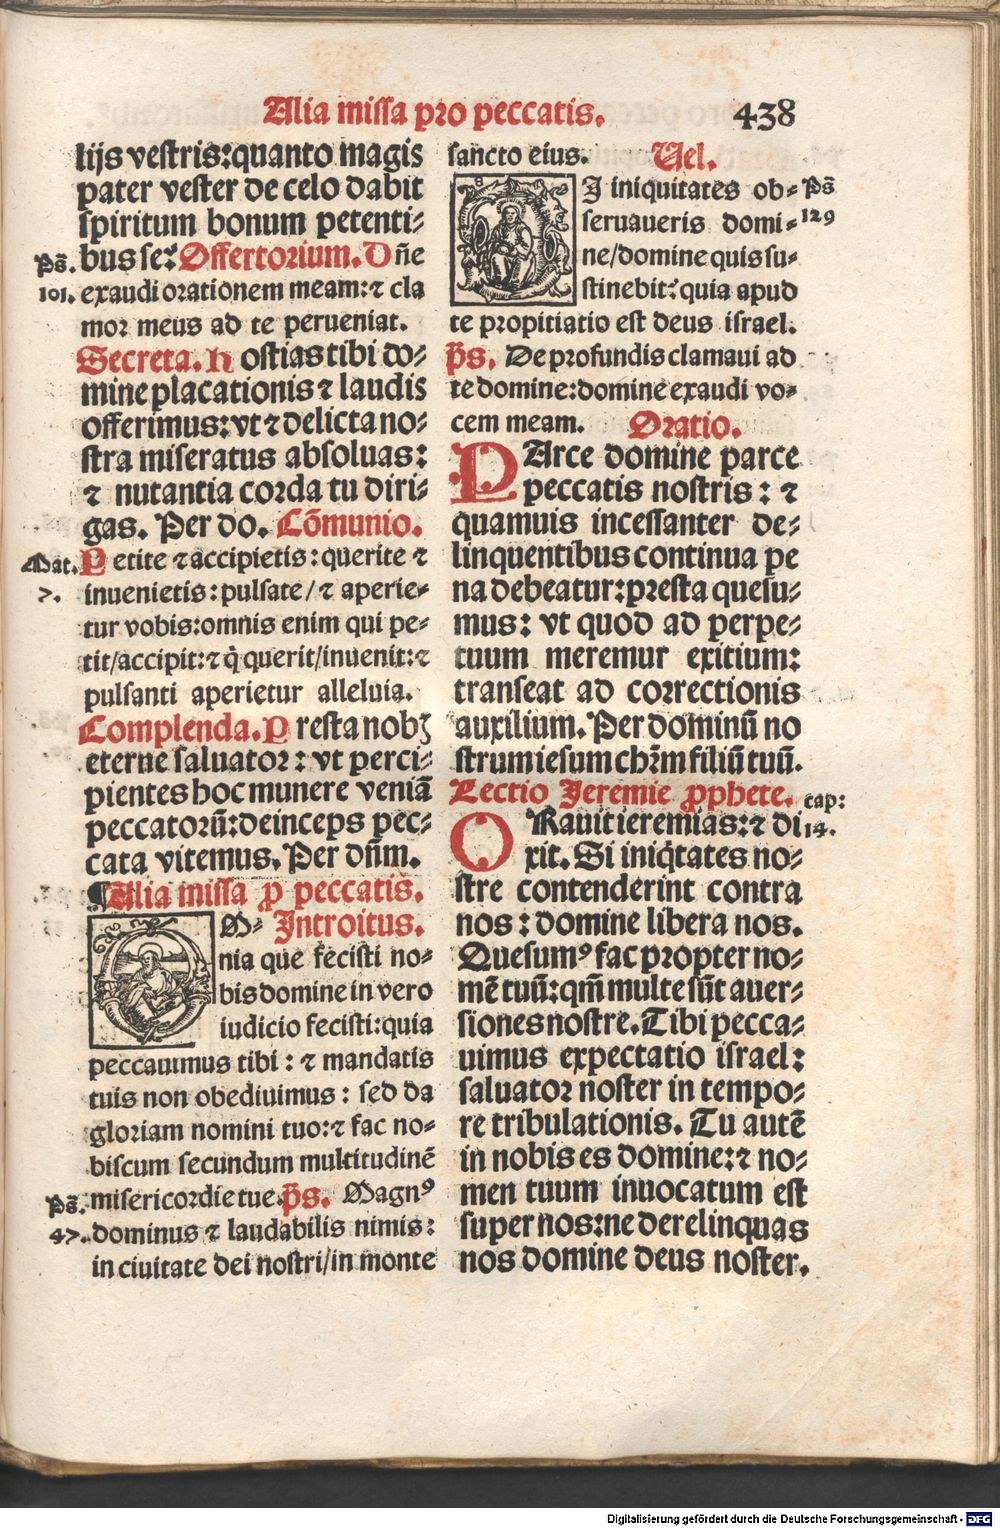 Alia missa pro peccatis. 438
lijs vestris: quanto magis
pater vester de celo dabit
spiritum bonum petenti⸗
bus se? Offertorium. Dñe
ps̄. 101.
exaudi orationem meam: ⁊ cla
mor meus ad te perueniat.
Secreta. Hostias tibi do⸗
mine placationis ⁊ laudis
offerimus: vt ⁊ delicta no⸗
stra miseratus absoluas:
⁊ nutantia corda tu diri⸗
gas. Per do. Cōmunio.
Mat. 7.
Petite ⁊ accipietis: querite ⁊
inuenietis: pulsate/ ⁊ aperie⸗
tur vobis: omnis enim qui pe⸗
tit/ accipit: ⁊ q̇ querit/ inuenit: ⁊
pulsanti aperietur alleluia.
Complenda. Presta nobꝫ
eterne saluator: vt perci⸗
pientes hoc munere veniā
peccatorū: deinceps pec⸗
cata vitemus. Per dñm.
¶ Alia missa ꝓ peccatis.
OM⸗ Introitus.
nia que fecisti no⸗
bis domine in vero
iudicio fecisti: quia
peccauimus tibi: ⁊ mandatis
tuis non obediuimus: sed da
gloriam nomini tuo: ⁊ fac no⸗
biscum secundum multitudinē
misericordie tue. p̄s. Magnꝰ
ps̄. 47.
dominus ⁊ laudabilis nimis:
in ciuitate dei nostri/ in monte
sancto eius. Uel.
SI iniquitates ob⸗
ps̄ 129
seruaueris domi⸗
ne/ domine quis su⸗
stinebit? quia apud
te propitiatio est deus israel.
p̄s. De profundis clamaui ad
te domine: domine exaudi vo⸗
cem meam. Oratio.
PArce domine parce
peccatis nostris: ⁊
quamuis incessanter de⸗
linquentibus continua pe
na debeatur: presta quesu⸗
mus: vt quod ad perpe⸗
tuum meremur exitium:
transeat ad correctionis
auxilium. Per dominū no
strum iesum chr̄m filiū tuū.
Lectio Jeremie ꝓphete.
cap: 14.
ORauit ieremias: ⁊ di
xit. Si iniq̇tates no⸗
stre contenderint contra
nos: domine libera nos.
Quesumꝰ fac propter no⸗
mē tuū: qm̄ multe sūt auer⸗
siones nostre. Tibi pecca⸗
uimus expectatio israel:
saluator noster in tempo⸗
re tribulationis. Tu autē
in nobis es domine: ⁊ no⸗
men tuum inuocatum est
super nos: ne derelinquas
nos domine deus noster.
Digitalisierung gefördert durch die Deutsche Forschungsgemeinschaft - DFG